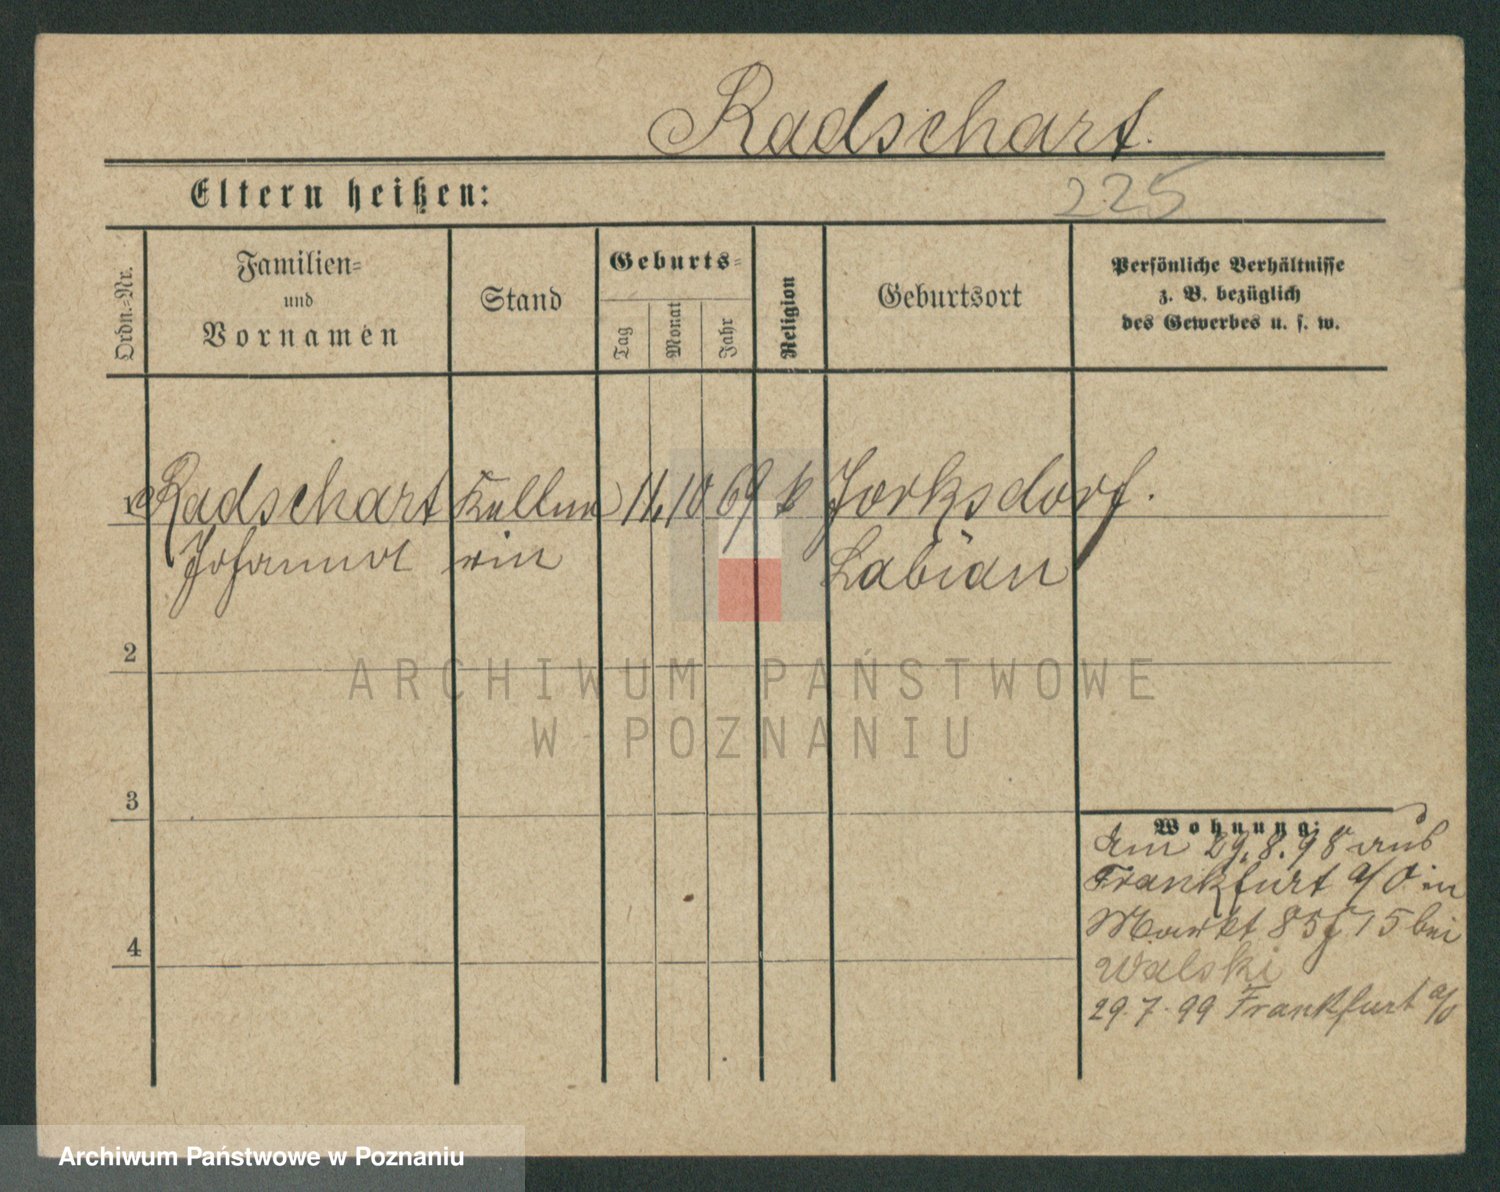 Radschart.
Eltern heißen:
225
Ordn.-Nr.
Familien-
und
Vornamen
Stand
Geburts-
Tag
Monat
Jahr
Religion
Geburtsort
Persönliche Verhältnisse
z. B. bezüglich
des Gewerbes u. s. w.
1 Radschart Kellne 11. 10 69 k Jorksdorf.
Johanna rin Labian
2
3
4
ARCHIWUM PAŃSTWOWE
W POZNANIU
Wohnung:
Am 29.8.98 aus
Frankfurt a/O in
Markt 85 75 bei
Walski
29.7.99 Frankfurt a/O
Archiwum Państwowe w Poznaniu